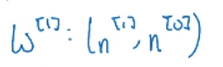 W^[1]: (n^[1], n^[0])